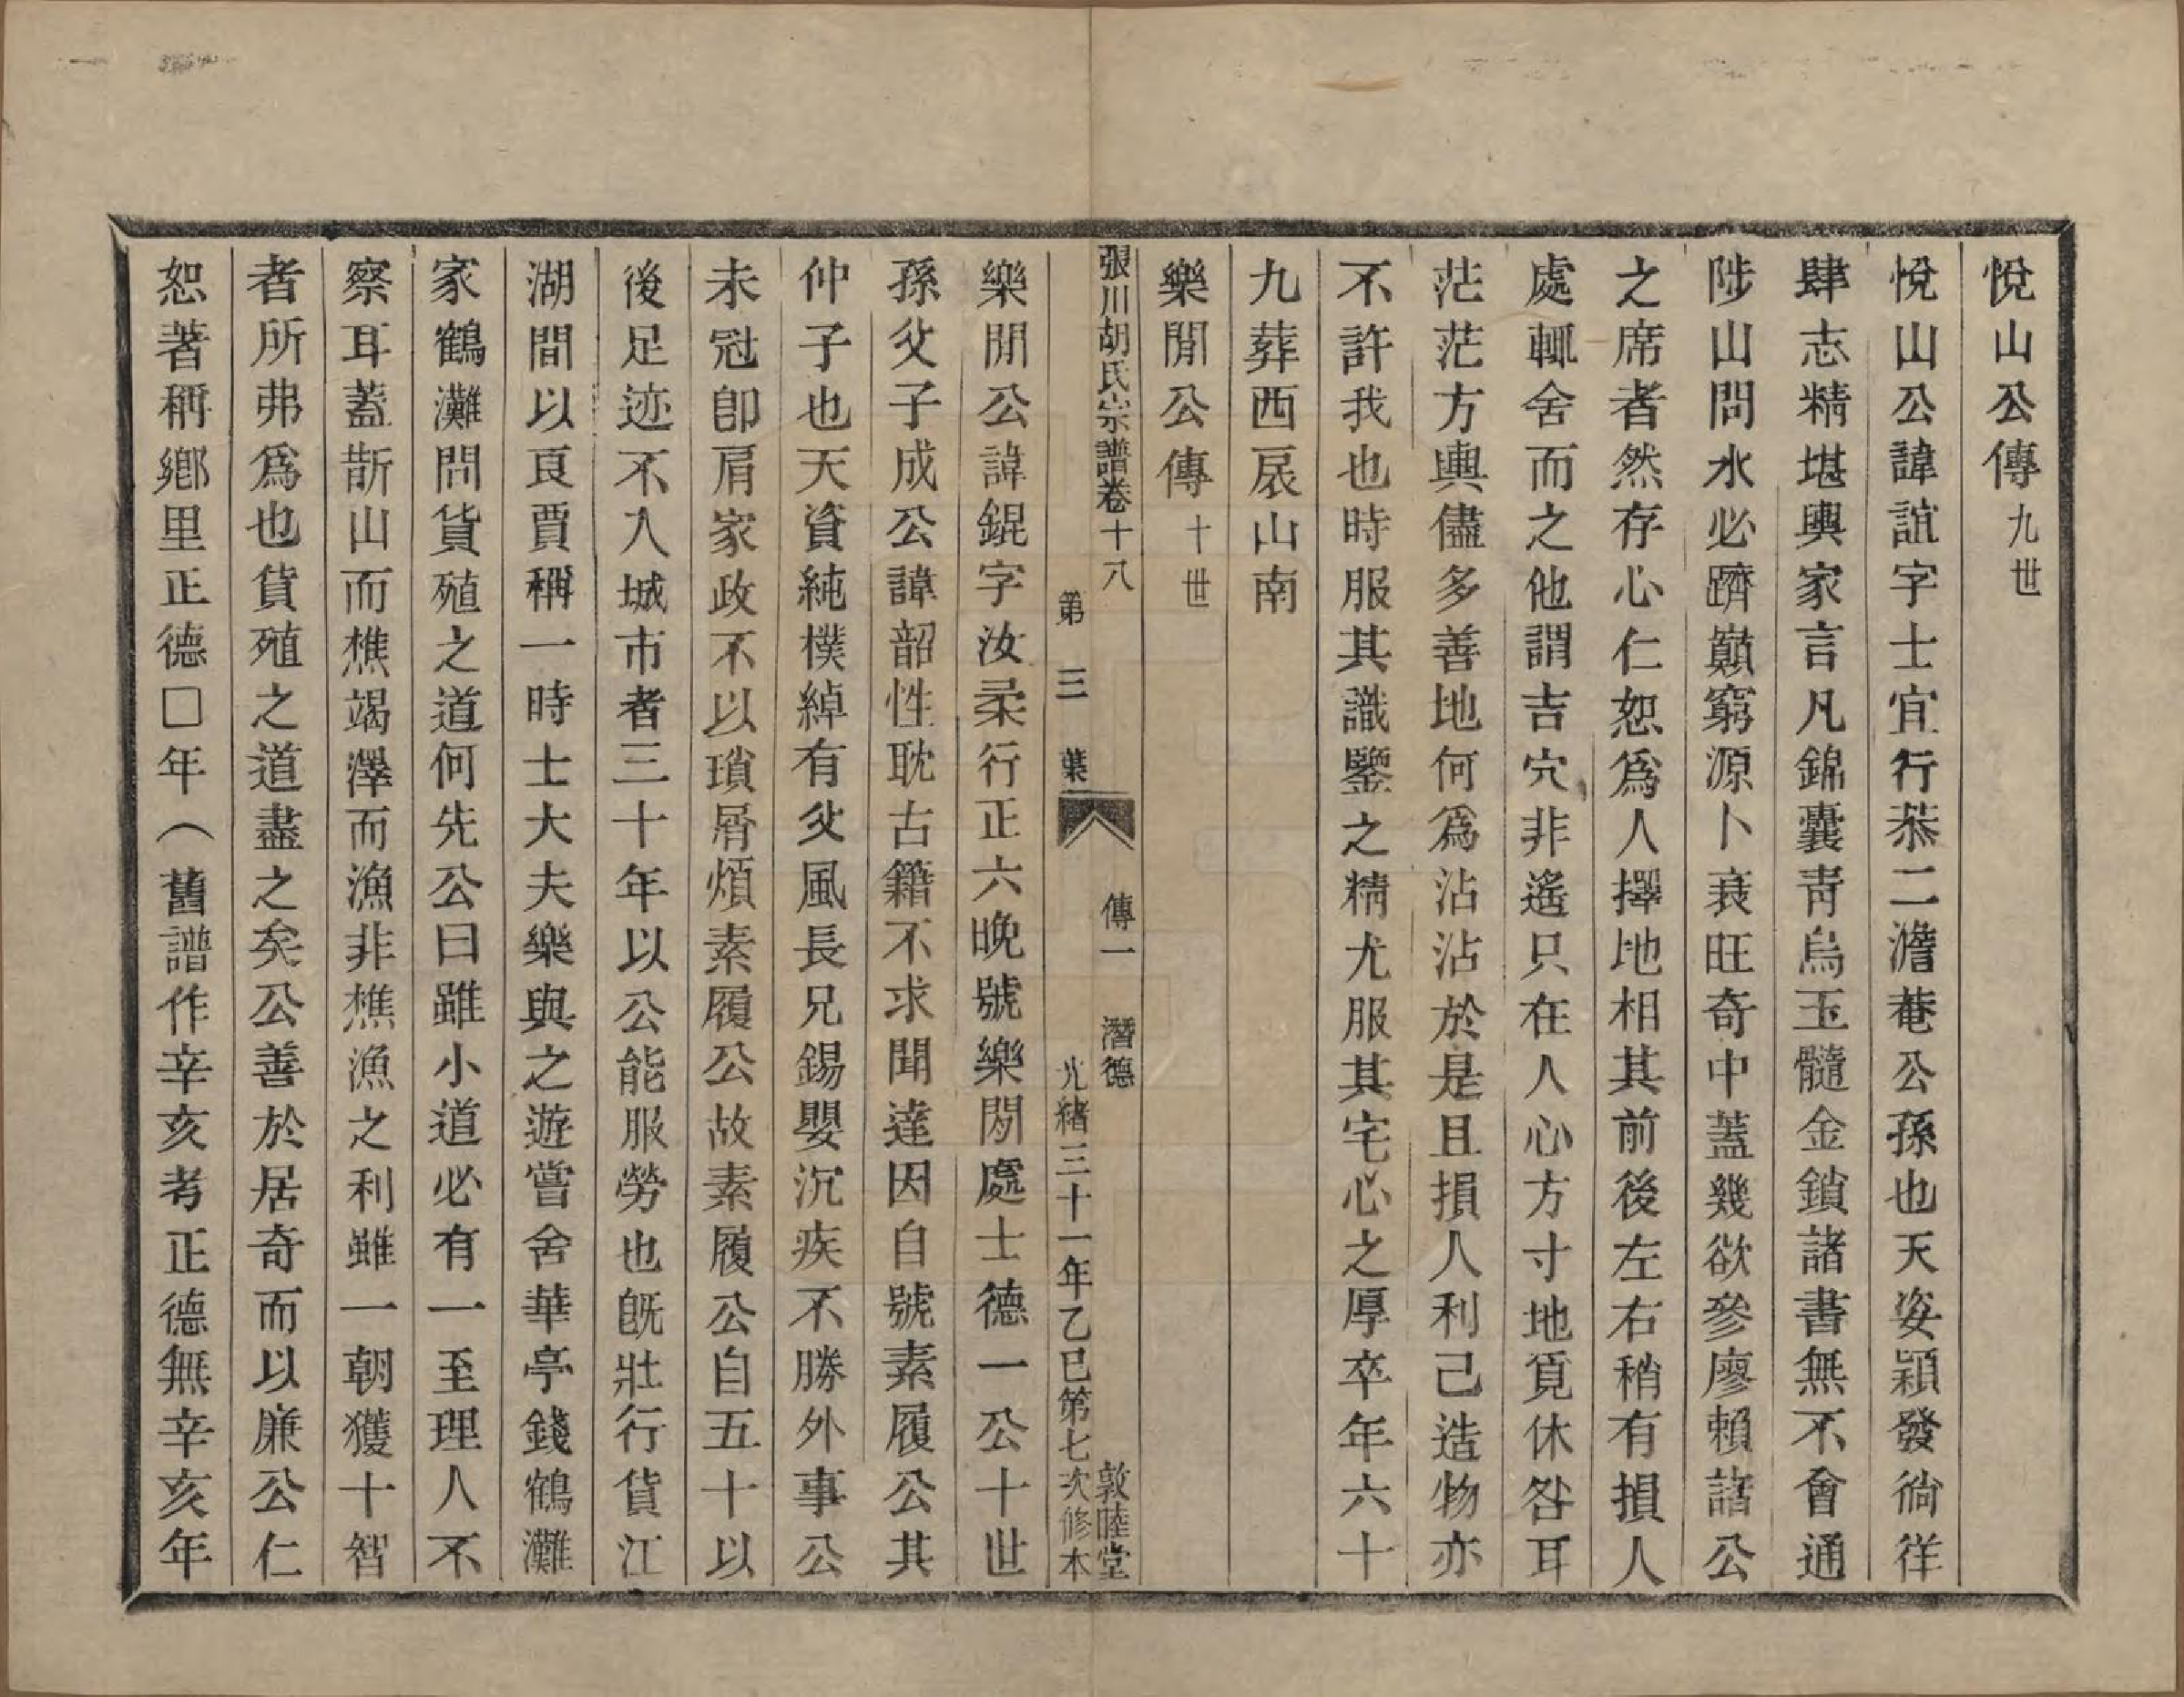 悅山公傳九世
悅山公諱誼字士宜行恭二澹菴公孫也天姿穎發徜徉
肆志精堪輿家言凡錦囊靑烏玉髓金鎖諸書無不會通
陟山問水必躋巔窮源卜衰旺奇中蓋幾欲參廖賴諸公
之席者然存心仁恕爲人擇地相其前後左右稍有損人
處輒舍而之他謂吉穴非遙只在人心方寸地覓休咎耳
茫茫方輿儘多善地何爲沾沾於是且損人利己造物亦
不許我也時服其識鑒之精尤服其宅心之厚卒年六十
九葬西扆山南
樂閒公傳十世
張川胡氏宗譜卷十八 傳一 潛德 敦睦堂
第三葉 光緒三十一年乙巳第七次修本
樂閒公諱錕字汝柔行正六晚號樂閒處士德一公十世
孫父子成公諱韶性耽古籍不求聞達因自號素履公其
仲子也天資純樸綽有父風長兄錫嬰沉疾不勝外事公
未冠卽肩家政不以瑣屑煩素履公故素履公自五十以
後足迹不入城市者三十年以公能服勞也旣壯行貨江
湖間以良賈稱一時士大夫樂與之遊嘗舍華亭錢鶴灘
家鶴灘問貨殖之道何先公曰雖小道必有一至理人不
察耳蓋斮山而樵竭澤而漁非樵漁之利雖一朝獲十智
者所弗爲也貨殖之道盡之矣公善於居奇而以廉公仁
恕著稱鄉里正德□年（舊譜作辛亥考正德無辛亥年